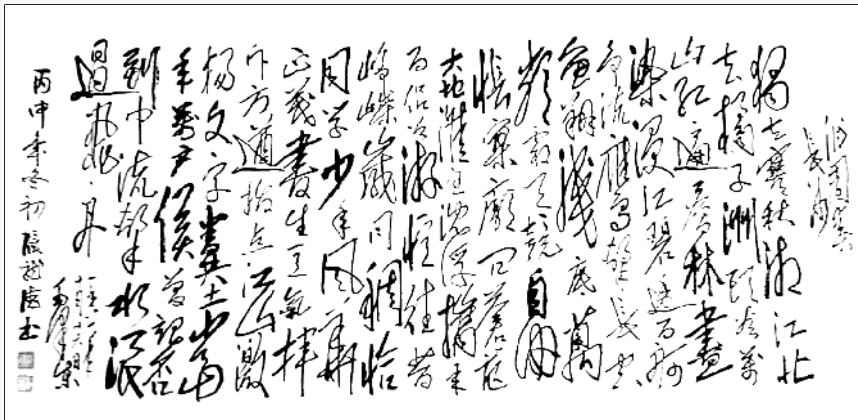 沁园春
长沙
獨立寒秋湘江北
去橘子洲頭看萬
山红遍層林盡
染漫江碧透百舸
争流鹰擊長空
鱼翔淺底萬
類霜天競自由
悵寥廓问蒼茫
大地誰主沉浮攜来
百侣曾游憶往昔
峥嵘歲月稠恰
同学少年風華
正茂書生意氣揮
斥方遒指点江山激
揚文字糞土当
年萬户侯曾記否
到中流擊水浪
遏飛舟
毛澤東
丙申年冬初
书